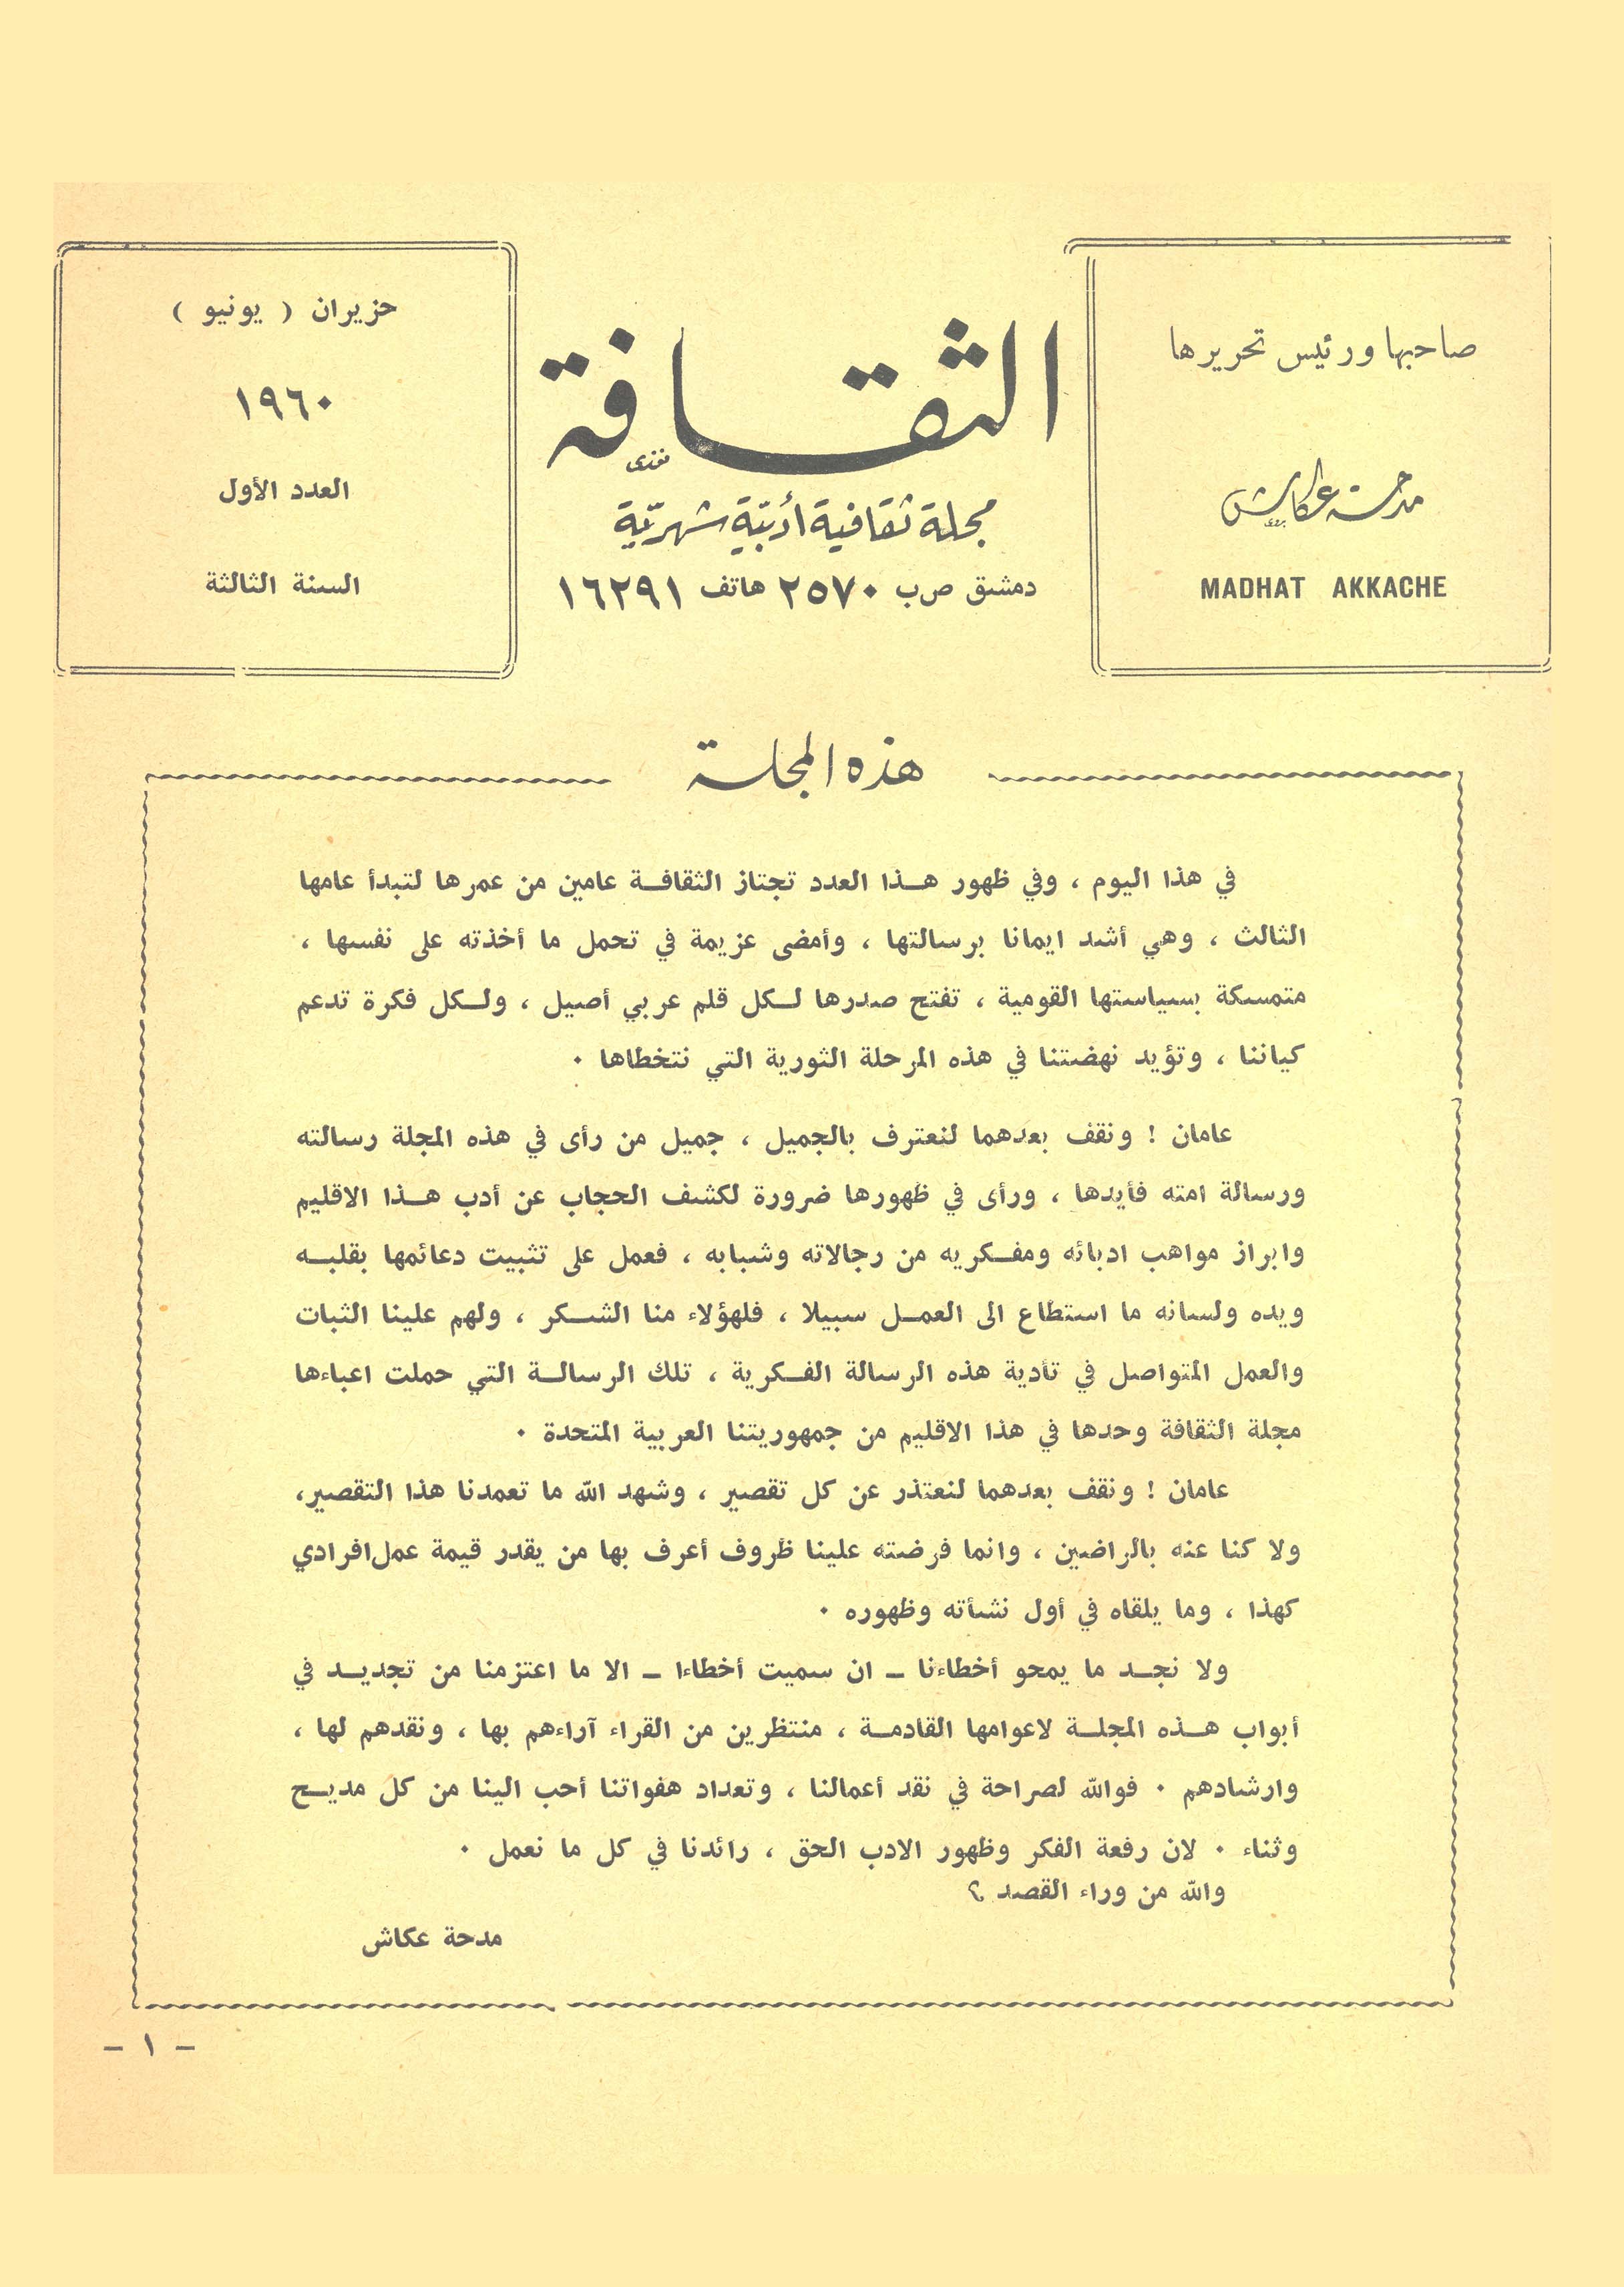 صاحبها ورئيس تحريرها
مدحت عكاش
MADHAT AKKACHE
الثقافة
مجلة ثقافية أدبيّة شهريّة
دمشق ص ب ٢٥٧٠ هاتف ١٦٢٩١
حزيران ( يونيو )
١٩٦٠
العدد الأول
السنة الثالثة
هذه المجلة
في هذا اليوم ، وفي ظهور هـذا العدد تجتاز الثقافـة عامين من عمرها لتبدأ عامها
الثالث ، وهي أشد ايمانا برسالتها ، وأمضى عزيمة في تحمل ما أخذته على نفسها ،
متمسكة بسياستها القومية ، تفتح صدرها لـكل قلم عربي أصيل ، ولـكل فكرة تدعم
كياننا ، وتؤيد نهضتنا في هذه المرحلة الثورية التي نتخطاها ٠
عامان ! ونقف بعدهما لنعترف بالجميل ، جميل من رأى في هذه المجلة رسالته
ورسالة امته فأيدها ، ورأى في ظهورها ضرورة لكشف الحجاب عن أدب هـذا الاقليم
وابراز مواهب ادبائه ومفـكريه من رجالاته وشبابه ، فعمل على تثبيت دعائمها بقلبـه
ويده ولسانه ما استطاع الى العمـل سبيلا ، فلهؤلاء منا الشـكر ، ولهم علينا الثبات
والعمل المتواصل في تأدية هذه الرسالة الفـكرية ، تلك الرسالـة التي حملت اعباءها
مجلة الثقافة وحدها في هذا الاقليم من جمهوريتنا العربية المتحدة ٠
عامان ! ونقف بعدهما لنعتذر عن كل تقصير ، وشهد الله ما تعمدنا هذا التقصير،
ولا كنا عنه بالراضين ، وانما فرضته علينا ظروف أعرف بها من يقدر قيمة عمل افرادي
كهذا ، وما يلقاه في أول نشأته وظهوره ٠
ولا نجـد ما يمحو أخطاءنا ـ ان سميت أخطاءا ـ الا ما اعتزمنا من تجديـد في
أبواب هـذه المجلـة لاعوامها القادمـة ، منتظرين من القراء آراءهم بها ، ونقدهم لها ،
وارشادهم ٠ فوالله لصراحة في نقد أعمالنا ، وتعداد هفواتنا أحب الينا من كل مديـح
وثناء ٠ لان رفعة الفكر وظهور الادب الحق ، رائدنا في كل ما نعمل ٠
والله من وراء القصد ؟
مدحة عكاش
– ١ –